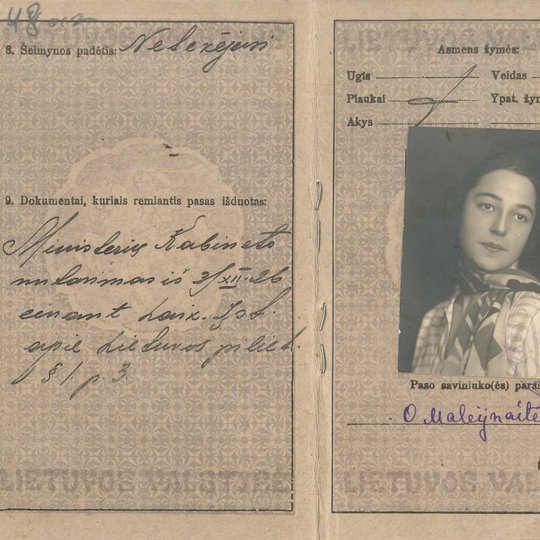 48
8. Šeimynos padėtis: Netekėjusi
9. Dokumentai, kuriais remiantis pasas išduotas:
Ministerių Kabineto
nutarimas iš 3/XII-26
einant Laik. Įst.
apie Lietuvos piliet.
§ 1 p. 3.
LIETUVOS VALSTYBĖ
Asmens žymės:
Ugis Veidas
Plaukai Ypat. žy
Akys
Paso savininko(ės) para
O. Maleynaitė
LIETUVOS VAL